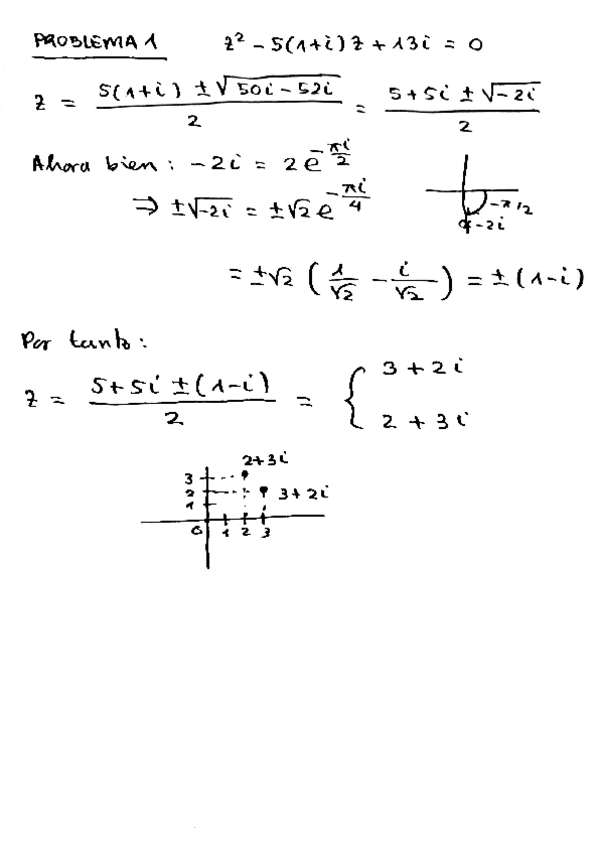 PROBLEMA 1 z² - 5(1+i)z + 13i = 0
z = (5(1+i) ± √(50i - 52i))/2 = (5+5i ± √(-2i))/2
Ahora bien: -2i = 2e^(-πi/2)
⇒ ±√(-2i) = ±√2 e^(-πi/4)
-π/2
-2i
= ±√2 (1/√2 - i/√2) = ±(1-i)
Por tanto:
z = (5+5i ± (1-i))/2 = { 3+2i
2+3i
2+3i
3
2 3+2i
1
0 1 2 3